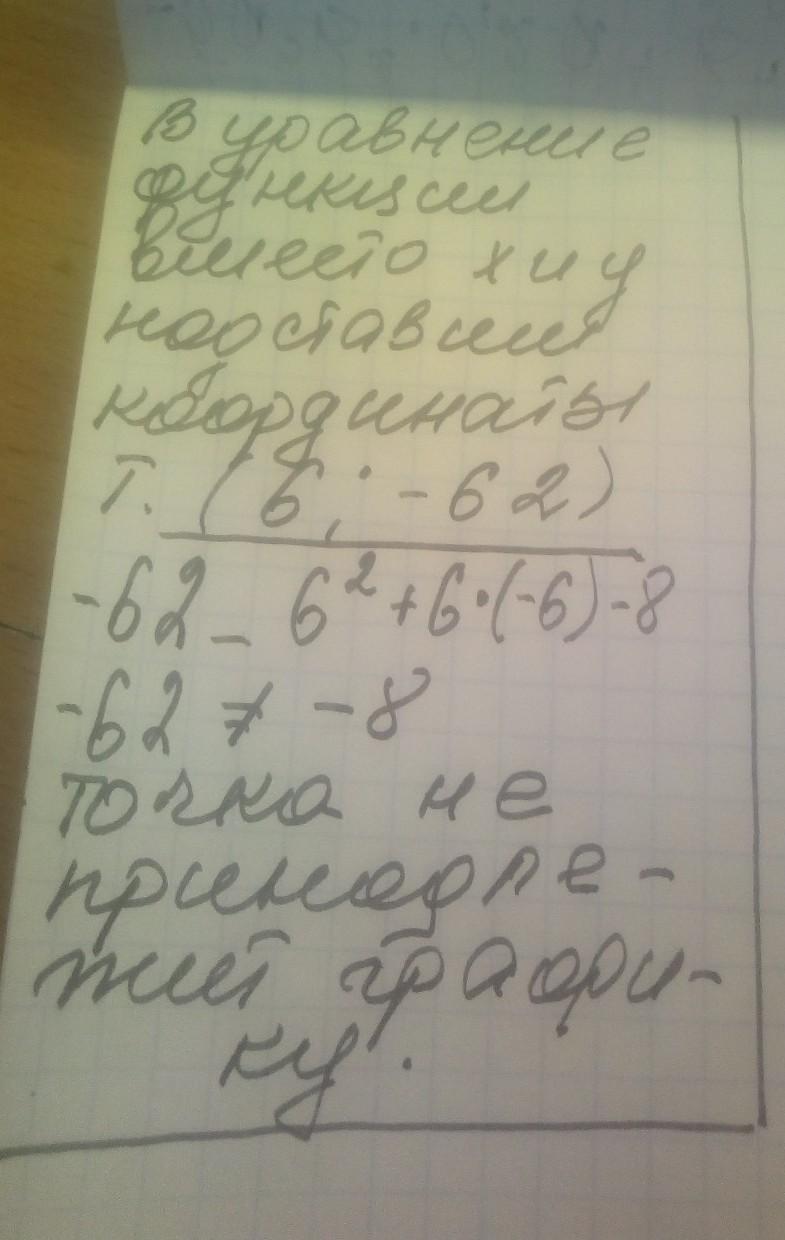 В уравнение
функции
вместо х и у
подставим
координаты
т. (6; -62)
-62 = 6² + 6·(-6) - 8
-62 ≠ -8
точка не
принадле-
жит графи-
ку.